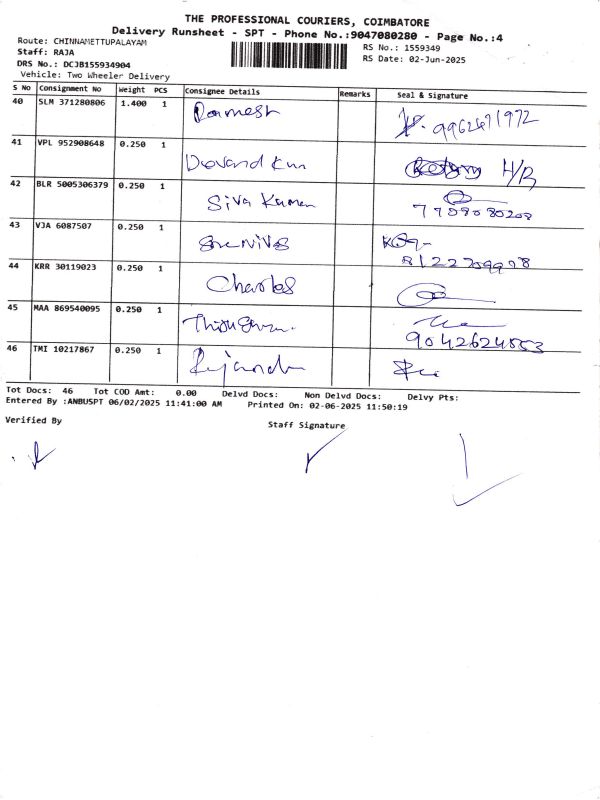 THE PROFESSIONAL COURIERS, COIMBATORE
Delivery Runsheet - SPT - Phone No.:9047080280 - Page No.:4
Route: CHINNAMETTUPALAYAM RS No.: 1559349
Staff: RAJA RS Date: 02-Jun-2025
DRS No.: DCJB155934904
Vehicle: Two Wheeler Delivery
S No Consignment No Weight PCS Consignee Details Remarks Seal & Signature
40 SLM 371280806 1.400 1
41 VPL 952908648 0.250 1 H/R
42 BLR 5005306379 0.250 1 Siva Kumar
43 VJA 6087507 0.250 1
44 KRR 30119023 0.250 1 Charles
45 MAA 869540095 0.250 1
46 TMI 10217867 0.250 1
Tot Docs: 46 Tot COD Amt: 0.00 Delvd Docs: Non Delvd Docs: Delvy Pts:
Entered By :ANBUSPT 06/02/2025 11:41:00 AM Printed On: 02-06-2025 11:50:19
Verified By Staff Signature